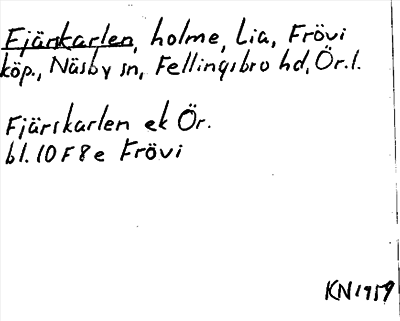 Fjärskarlen, holme, Lia, Frövi
köp., Näsby sn, Fellingsbro hd, Ör.l.
Fjärskarlen ek Ör.
bl. 10 F 8 e Frövi
KN 1959